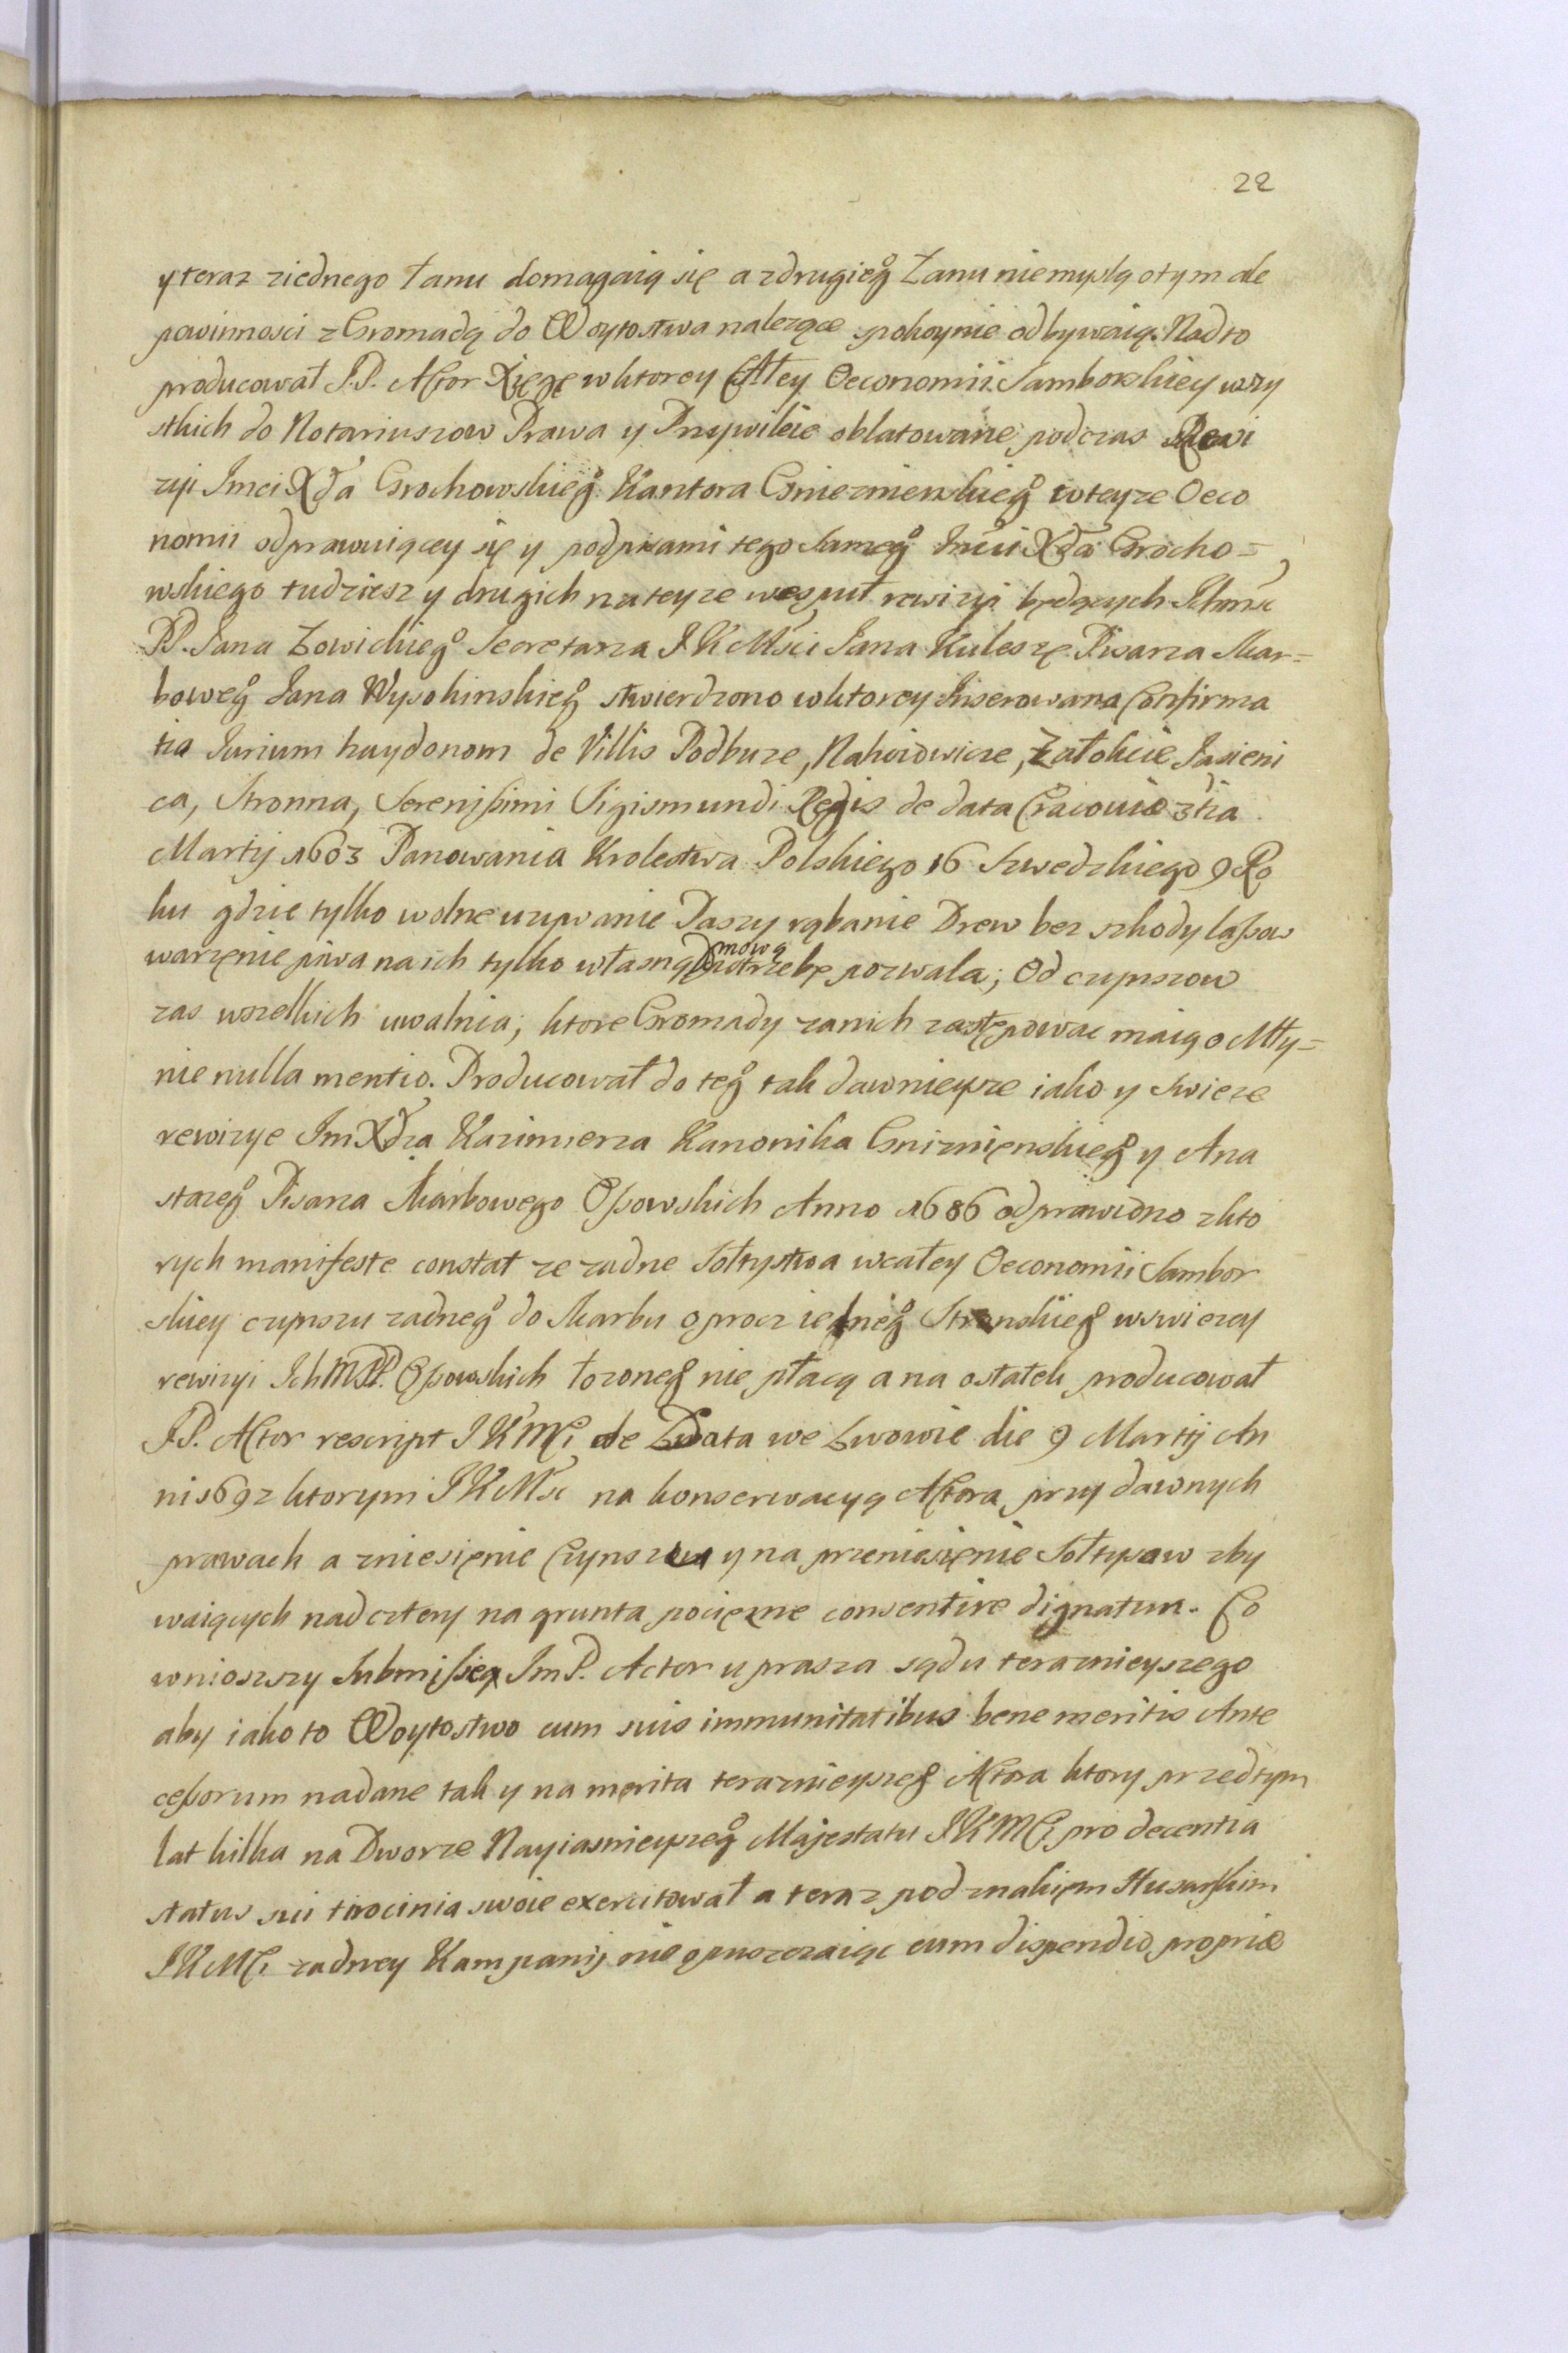 22
y teraz ziednego łanu domagaią się a zdrugieg° Łanu niemyslą otym ale
powinnosci z Gromadą do Woytostwa nalezące spokoynie odbywaią. Nadto
producował J.P. Actor Xięgę wktorey Całey Oeconomii Samborskiey wszy
stkich do Notariuszow Prawa y Przywileie oblatowane podczas Rewi
zyi Jmci Xdza Grochowskieg° Kantora Gnieznienskieg° wteyze Oeco
nomii odprawuiącey się y podpisami tego Sameg° Jmci Xdza Grocho=
wskiego tudziesz y drugich nateyze wespuł rewizyi będących Ichmsc
PP. Jana Łowickieg° Secretarza JKMsci Jana Kuleszę Pisarza Skar=
boweg° Jana Wysokinskieg° stwierdzono wktorey Inserowana Confirma
tia Iurium haydonom de Villis Podbuze, Nahoiowicze, Załokcie Jasieni
ca, Stronna, Serenissimi Sigismundi Regis de data Cracoviæ 3tia
Martij 1603 Panowania Krolestwa Polskiego 16 Szwedzkiego 9 Ro
ku gdzie tylko wolne uzywanie Paszy rąbanie Drew bez szkody lasow
warzenie piwa na ich tylko własną Domową potrzebę pozwala; Od czynszow
zas wszelkich uwalnia; ktore Gromady zanich zastępowac maią o Mły=
nie nulla mentio. Producował do teg° tak dawnieysze iako y swieze
rewizye Jm Xdza Kazimierza Kanonika Gniznienskieg° y Ana
stazeg° Pisarza Skarbowego Ossowskich Anno 1686 odprawiono zkto
rych manifeste constat ze zadne Sołtystwa wcałey Oeconomii Sambor
skiey czynszu zadneg° do Skarbu oprocz iedneg° Stronskieg° wswiezey
rewizyi IchMPP. Ossowskich łozoneg° nie płacą a na ostatek producował
JP. Actor rescript JKMCi de Data we Lwowie die 9 Martij An
ni 1692 ktorym JKMsc na konserwacyą Actora przy dawnych
prawach a zniesięnie Czynszu y na przeniesięnie Sołtysow zby
waiących nadcztery na grunta pociężne consentire dignatur. Co
wnioszszy Submissią JmP. Actor uprasza sądu teraznieyszego
aby iako to Woytostwo cum suis immunitatibus bene meritis Ante
cessorum nadane tak y na merita teraznieyszeg° Actora ktory przedtym
lat kilka na Dworze Nayiasnieyszeg° Majestatu JKMCi pro decentia
status sui tirocinia swoie exercitował a teraz pod znakiem Husarskim
JKMCi zadney Kampanij nie opuszczaiąc cum dispendio propriæ